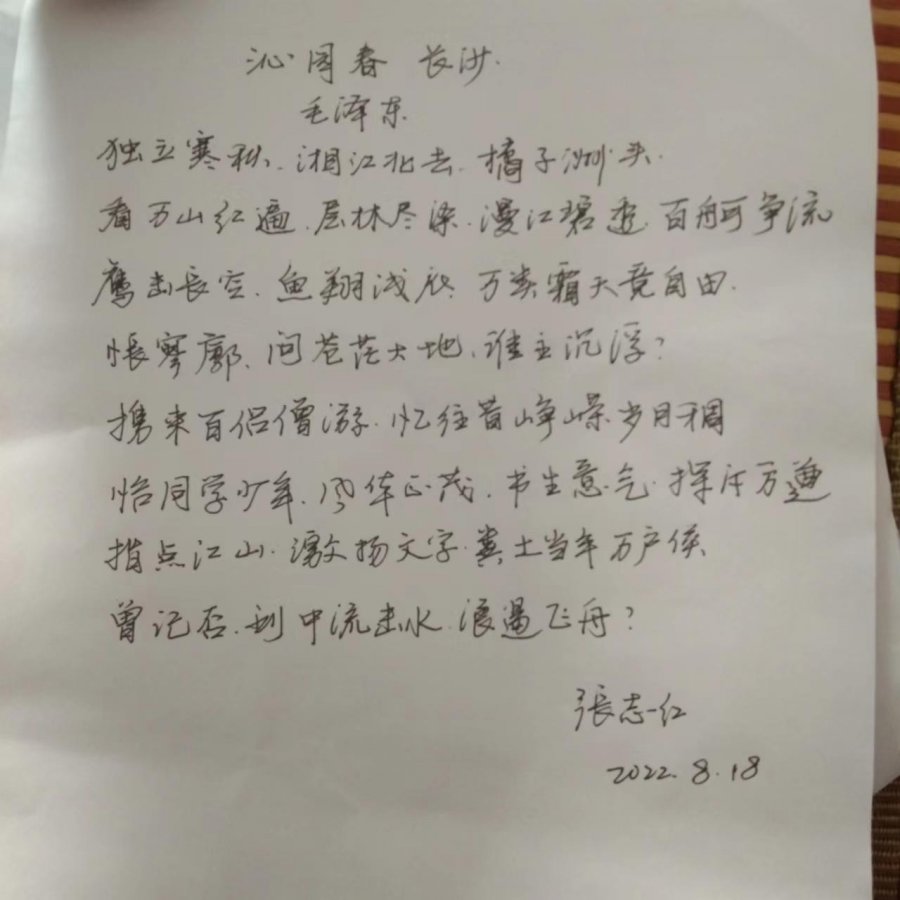 沁园春 长沙.
毛泽东.
独立寒秋、湘江北去.橘子洲头.
看万山红遍.层林尽染.漫江碧透.百舸争流
鹰击长空.鱼翔浅底.万类霜天竞自由.
怅寥廓、问苍茫大地、谁主沉浮?
携来百侣僧游.忆往昔峥嵘岁月稠
恰同学少年.风华正茂.书生意气.挥斥方遒
指点江山.激扬文字.粪土当年万户侯、
曾记否.到中流击水.浪遏飞舟?
張志红
2022.8.18